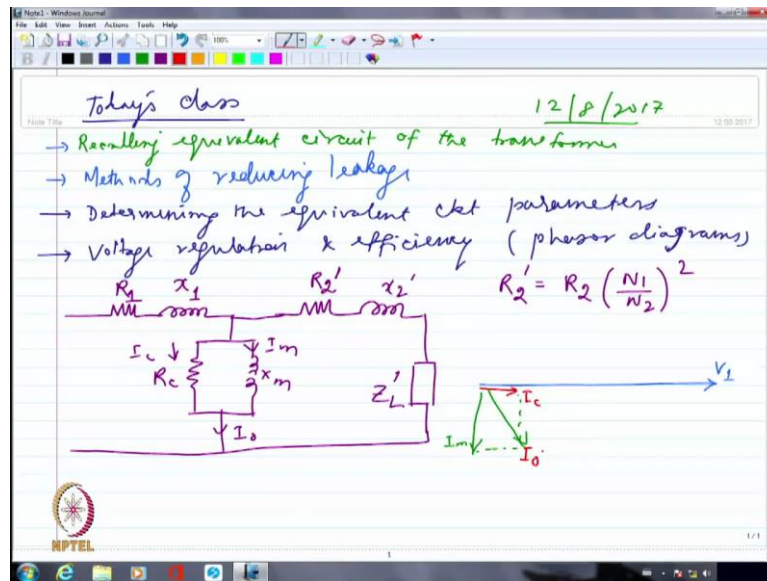 Note1 - Windows Journal
File Edit View Insert Actions Tools Help
100%
B I
Note Title
Today's class
12/8/2017
12:00 2017
→ Recalling equivalent circuit of the transformer
→ Methods of reducing leakage
→ Determining the equivalent ckt parameters
→ Voltage regulation & efficiency (phasor diagrams)
R1 x1 R2' x2' R2' = R2 (N1/N2)^2
Ic ↓ Rc ↓ Im xm ZL' V1
Ic
Im
↓ I0 I0
NPTEL
1/1
1